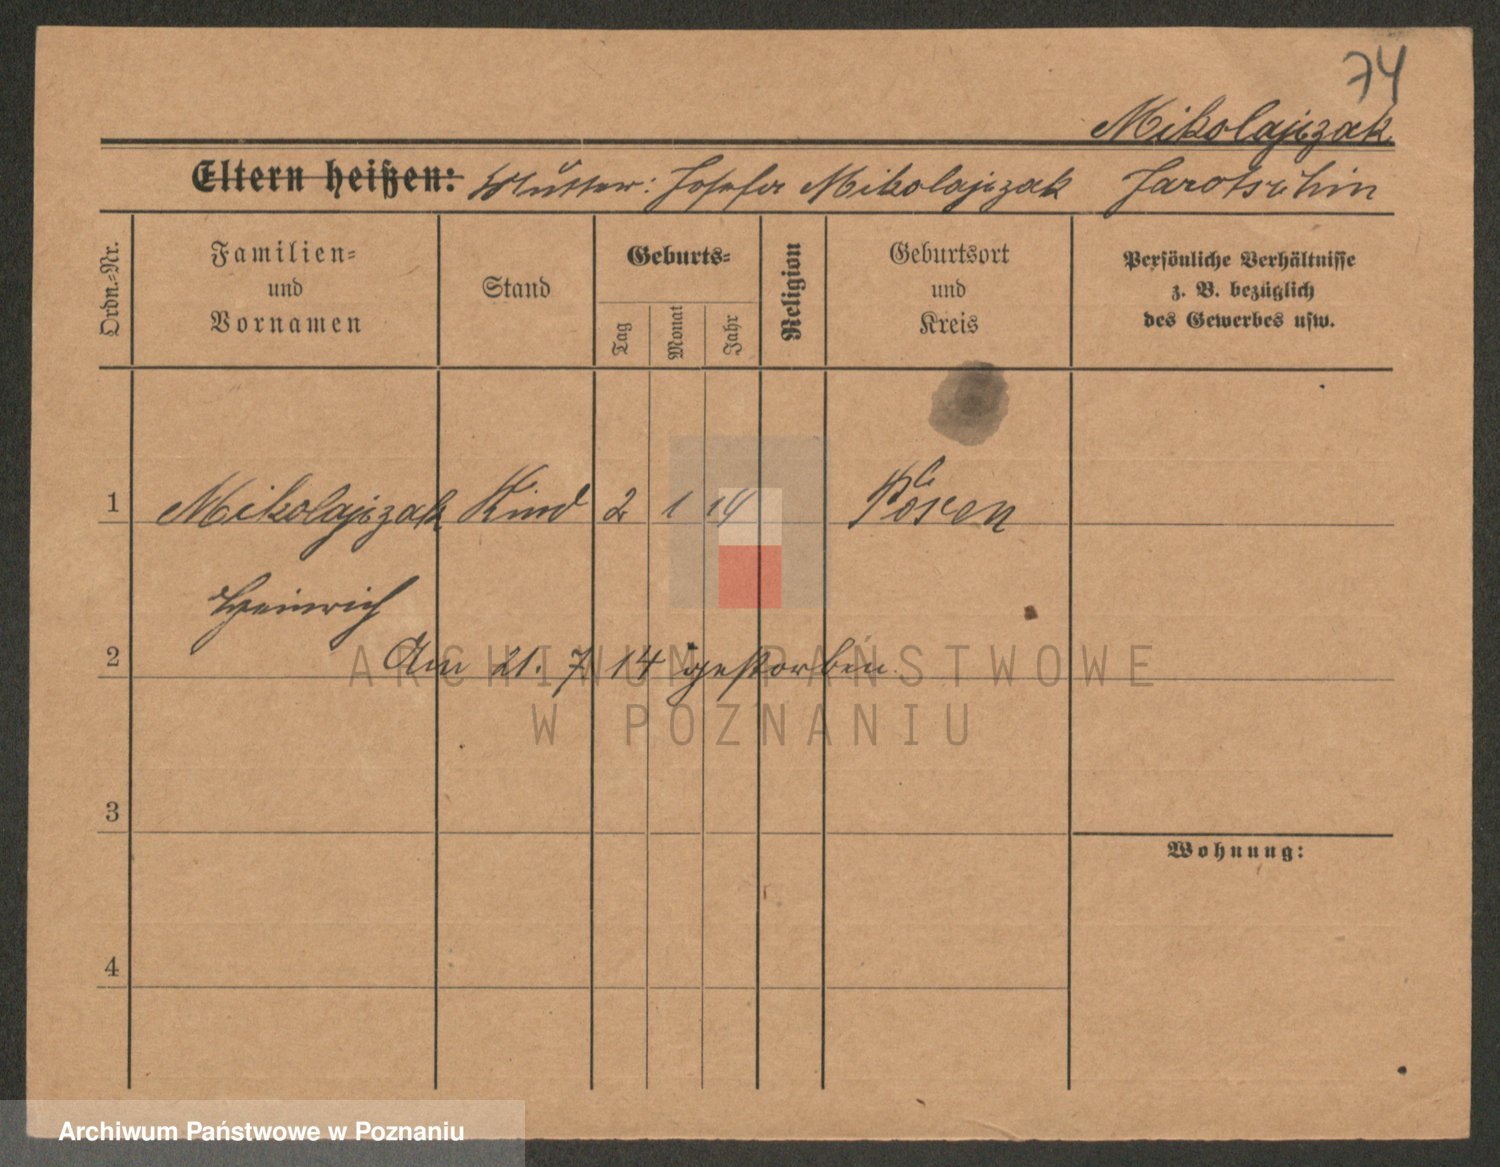 74
Mikolajczak
Eltern heißen: Mutter: Josefa Mikolajczak Jarotschin
Ordn.-Nr.
Familien-
und
Vornamen
Stand
Geburts-
Tag
Monat
Jahr
Religion
Geburtsort
und
Kreis
Persönliche Verhältnisse
z. B. bezüglich
des Gewerbes usw.
1 Mikolajczak Kind 2 1 14 Posen
Heinrich
2 Am 21. 7 14 gestorben.
ARCHIWUM PAŃSTWOWE
W POZNANIU
3
Wohnung:
4
Archiwum Państwowe w Poznaniu